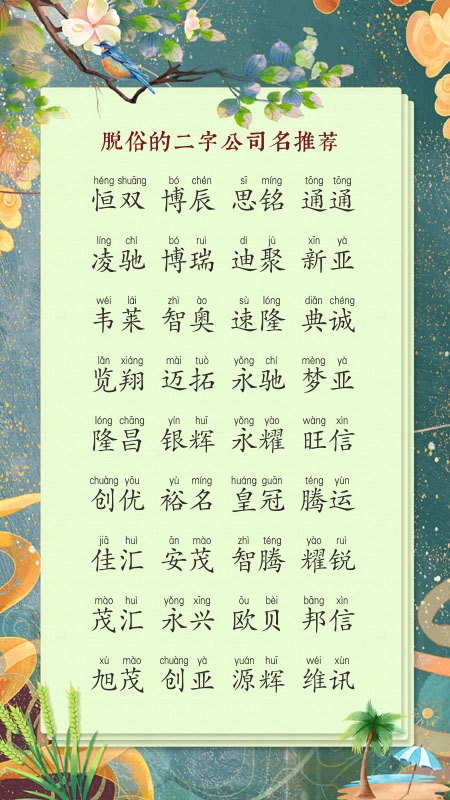 脱俗的二字公司名推荐
héng shuāng bó chén sī míng tōng tōng
恒双 博辰 思铭 通通
líng chí bó ruì dí jù xīn yà
凌驰 博瑞 迪聚 新亚
wéi lái zhì ào sù lóng diǎn chéng
韦莱 智奥 速隆 典诚
lǎn xiáng mài tuò yǒng chí mèng yà
览翔 迈拓 永驰 梦亚
lóng chāng yín huī yǒng yào wàng xìn
隆昌 银辉 永耀 旺信
chuàng yōu yù míng huáng guān téng yùn
创优 裕名 皇冠 腾运
jiā huì ān mào zhì téng yào ruì
佳汇 安茂 智腾 耀锐
mào huì yǒng xīng ōu bèi bāng xìn
茂汇 永兴 欧贝 邦信
xù mào chuàng yà yuán huī wéi xùn
旭茂 创亚 源辉 维讯